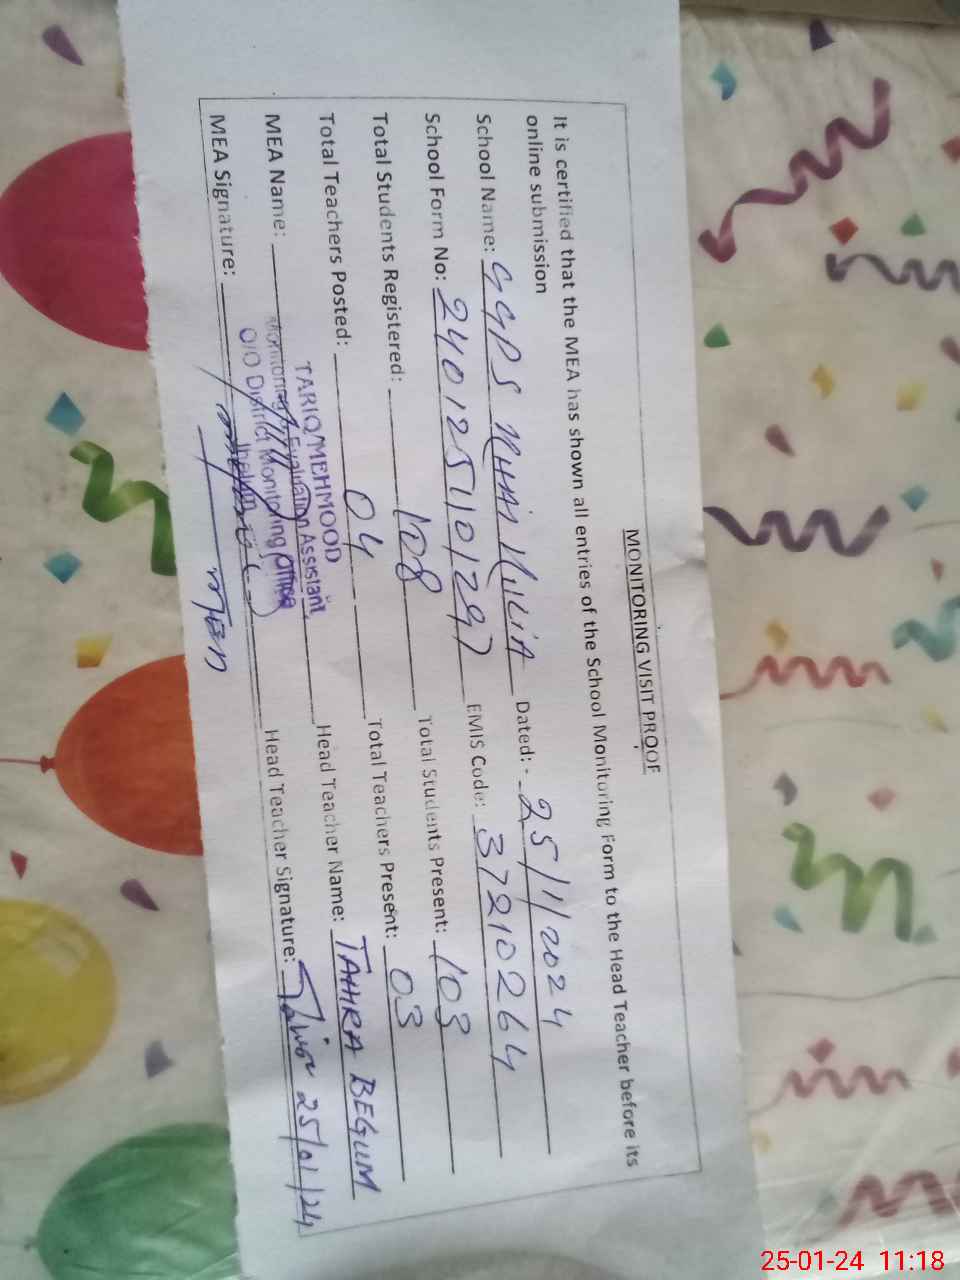 MONITORING VISIT PROOF
It is certified that the MEA has shown all entries of the School Monitoring Form to the Head Teacher before its
online submission
School Name: GGPS Dated: - 25/1/2024
School Form No: 24012511101297 EMIS Code: 37210264
Total Students Registered: 108 Total Students Present: 103
Total Teachers Posted: 04 Total Teachers Present: 03
TARIQ MEHMOOD
MEA Name: Monitoring & Evaluation Assistant Head Teacher Name: TAHRA BEGUM
O/O District Monitoring Office
Jhelum
MEA Signature: Head Teacher Signature: 25/01/24
25-01-24 11:18